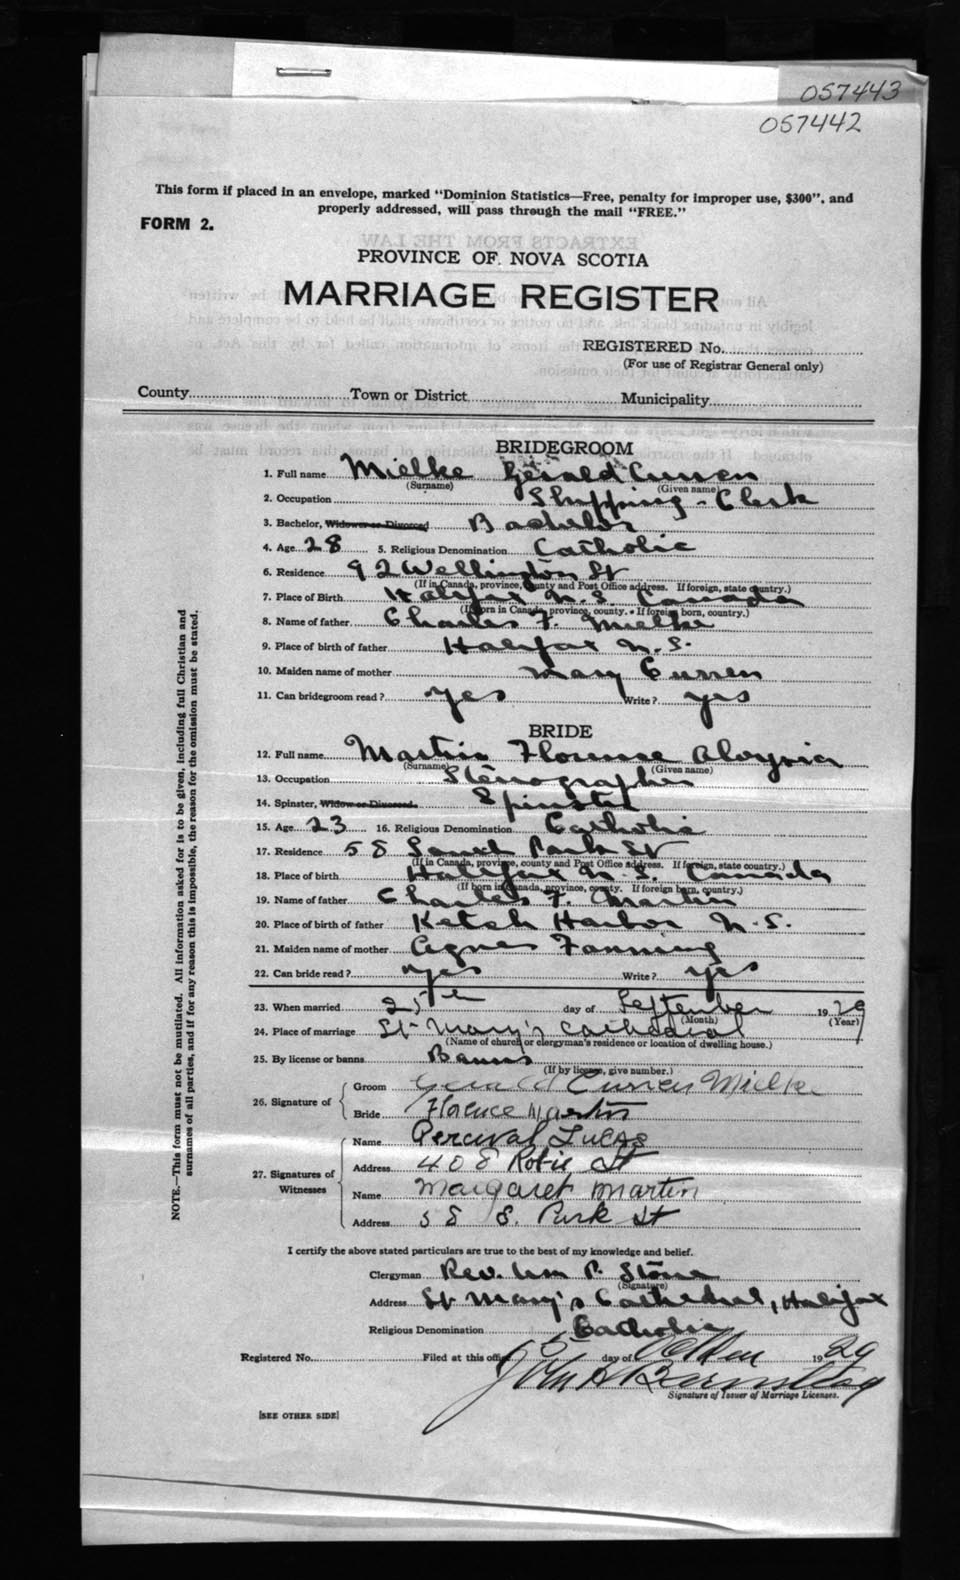 057443
057442
This form if placed in an envelope, marked "Dominion Statistics—Free, penalty for improper use, $300", and
properly addressed, will pass through the mail "FREE."
FORM 2.
PROVINCE OF NOVA SCOTIA
MARRIAGE REGISTER
REGISTERED No.
(For use of Registrar General only)
County Town or District Municipality
BRIDEGROOM
1. Full name Mielke Gerald Curren
(Surname) (Given name)
2. Occupation Shipping - Clerk
3. Bachelor, Widower or Divorced Bachelor
4. Age 28 5. Religious Denomination Catholic
6. Residence 92 Wellington St
(If in Canada, province, county and Post Office address. If foreign, state country.)
7. Place of Birth Halifax N.S. Canada
(If born in Canada, province, county. If foreign born, country.)
8. Name of father Charles F. Mielke
9. Place of birth of father Halifax N.S.
10. Maiden name of mother Mary Curren
11. Can bridegroom read? yes Write? yes
BRIDE
12. Full name Martin Florence Aloysia
(Surname) (Given name)
13. Occupation Stenographer
14. Spinster, Widow or Divorced. Spinster
15. Age 23 16. Religious Denomination Catholic
17. Residence 58 South Park St
(If in Canada, province, county and Post Office address. If foreign, state country.)
18. Place of birth Halifax N.S. Canada
(If born in Canada, province, county. If foreign born, country.)
19. Name of father Charles F. Martin
20. Place of birth of father Ketch Harbor N.S.
21. Maiden name of mother Agnes Fanning
22. Can bride read? yes Write? yes
23. When married 25th day of September 1929
(Month) (Year)
24. Place of marriage St Mary's Cathedral
(Name of church or clergyman's residence or location of dwelling house.)
25. By license or banns Banns
(If by license, give number.)
26. Signature of
Groom Gerald Curren Mielke
Bride Florence Martin
27. Signatures of Witnesses
Name Percival Lucas
Address 408 Robie St
Name Margaret Martin
Address 58 S. Park St
I certify the above stated particulars are true to the best of my knowledge and belief.
Clergyman Rev. Wm P. Stone
(Signature)
Address St Mary's Cathedral, Halifax
Religious Denomination Catholic
Registered No. Filed at this office 5 day of October 1929
John H Barnstead
Signature of Issuer of Marriage Licenses.
[SEE OTHER SIDE]
NOTE.—This form must not be mutilated. All information asked for is to be given, including full Christian and
surnames of all parties, and if for any reason this is impossible, the reason for the omission must be stated.